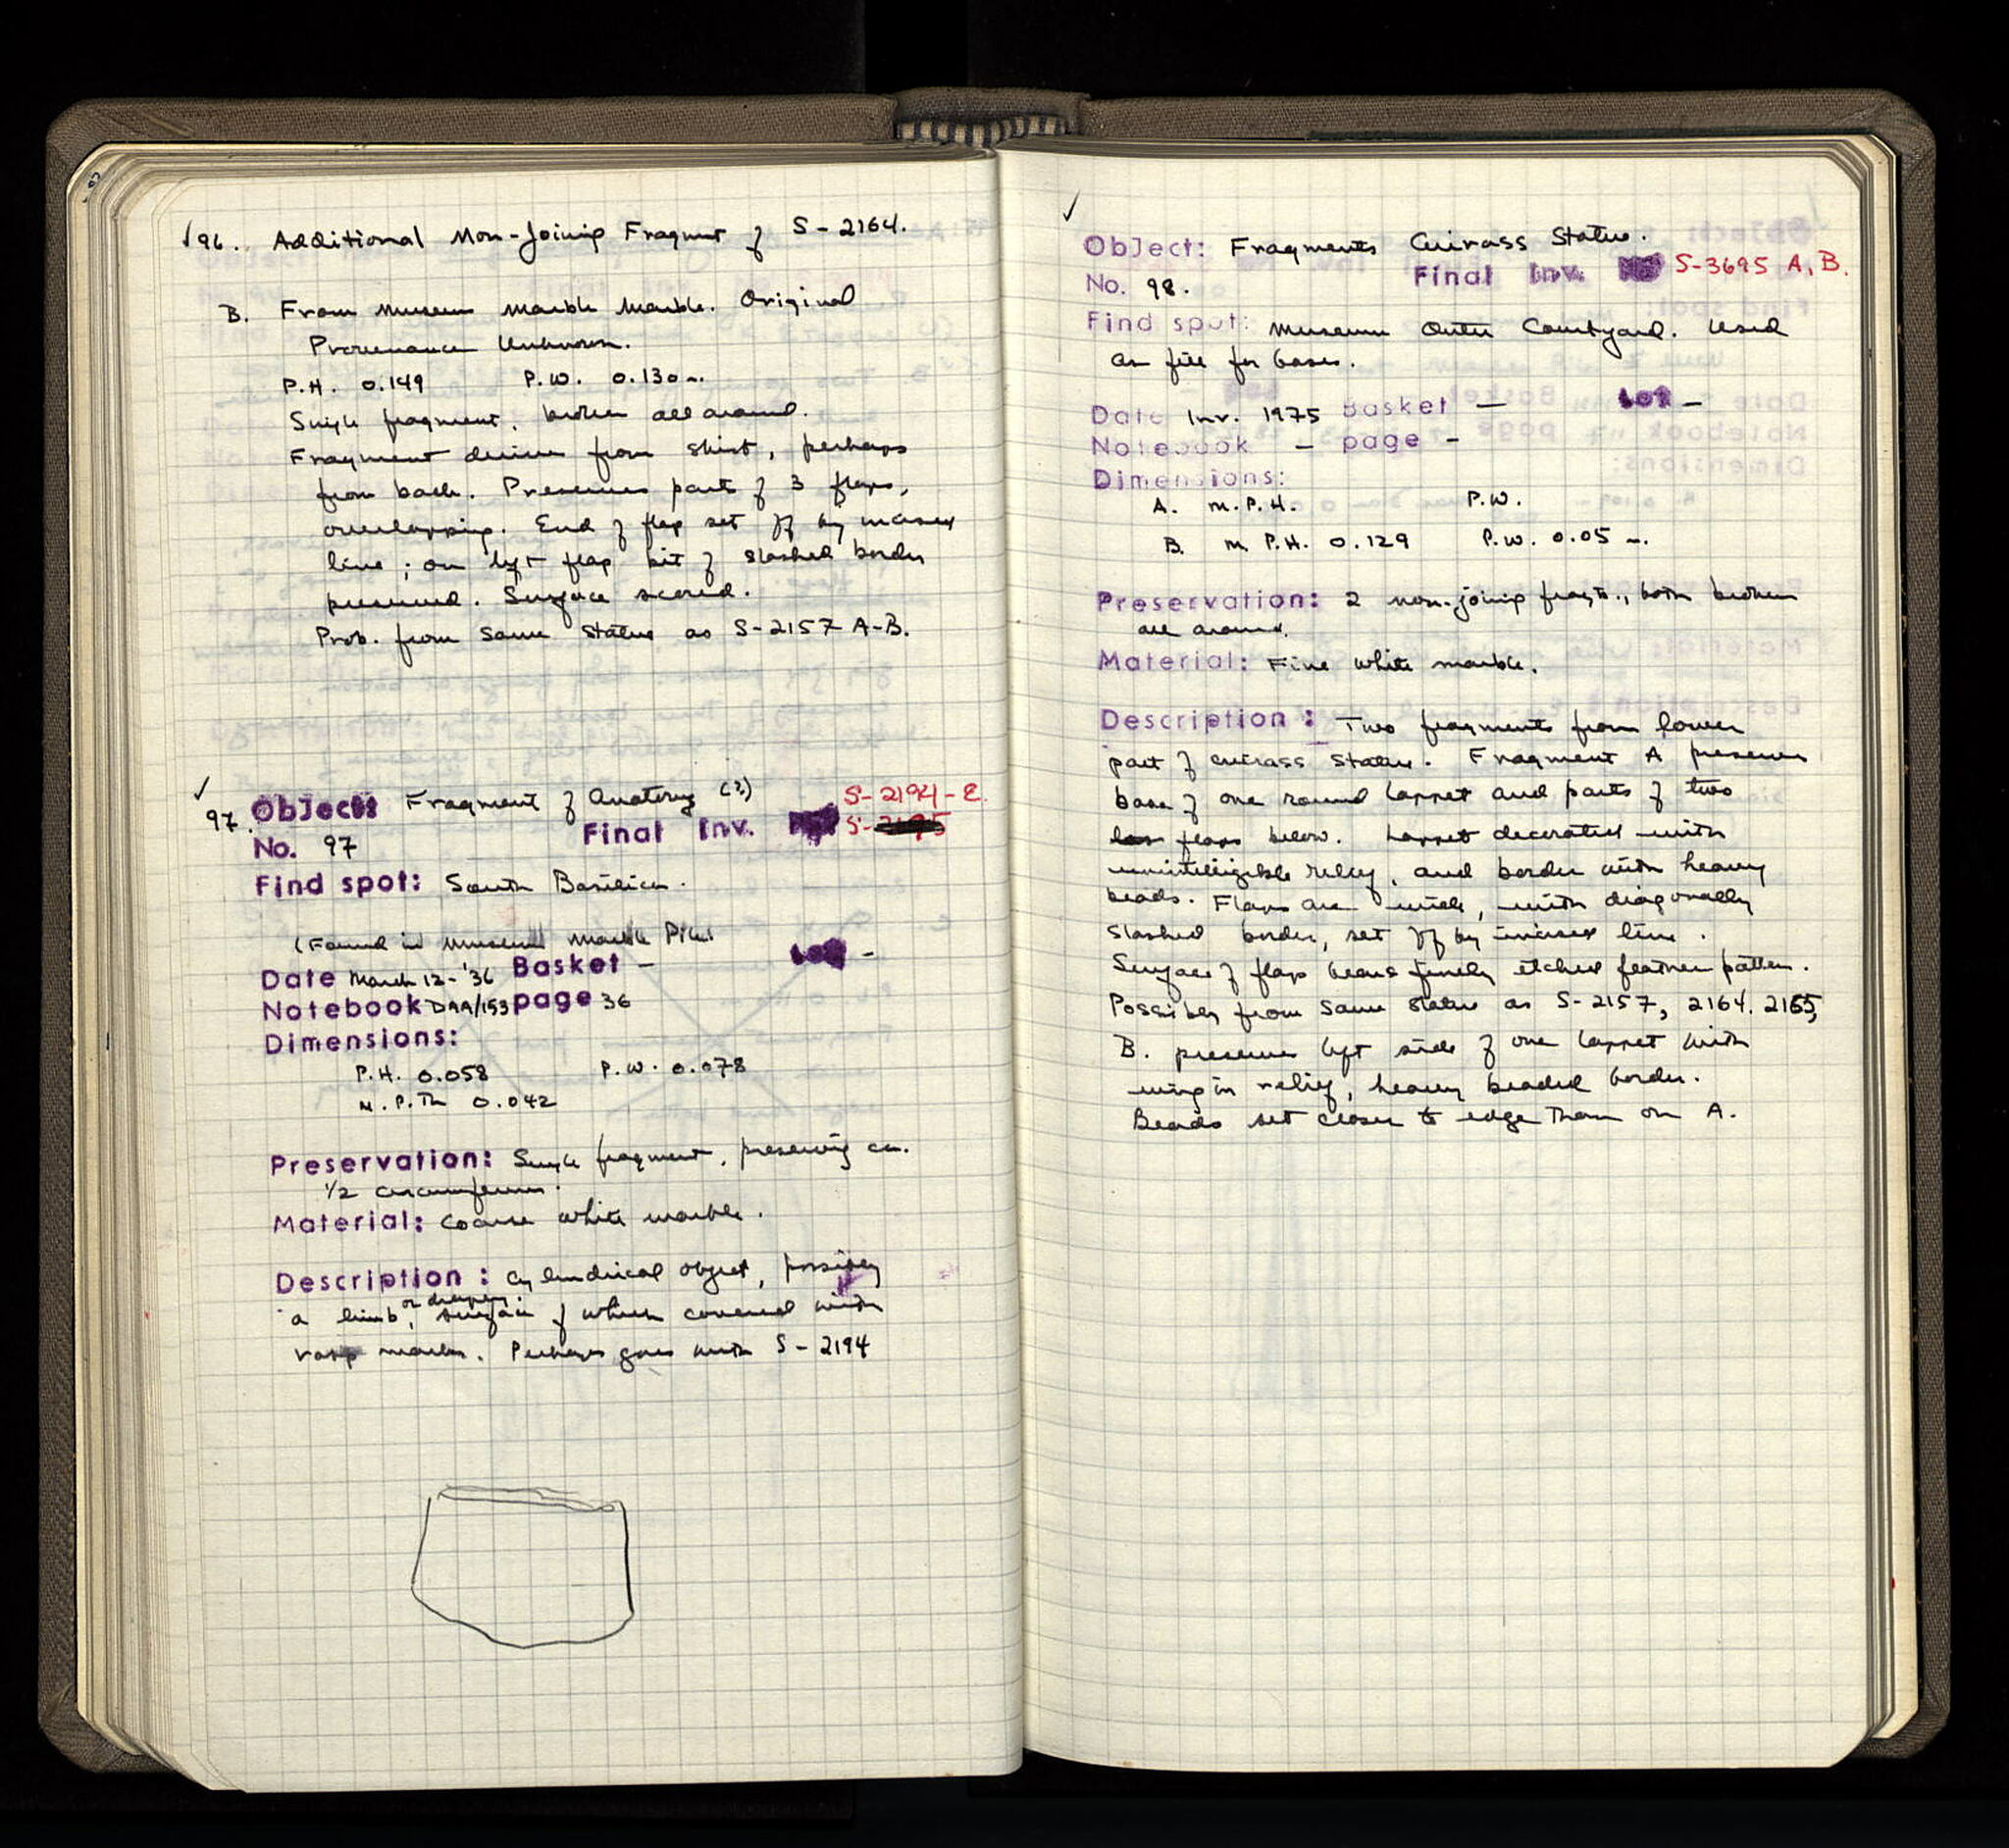 √96. Additional Non-Joining Fragment of S-2164.
B. From Museum Marble Marble. Original
Provenance Unknown.
P.H. 0.149 P.W. 0.130 m.
Single fragment, broken all around.
Fragment derives from skirt, perhaps
from back. Preserves part of 3 flaps,
overlapping. End of flap set off by incised
line; on left flap bit of slashed border
preserved. Surface scored.
Prob. from same statue as S-2157 A-B.
√
97. Object: Fragment of Anatomy (?) S-2194-E
No. 97 Final Inv. S-2195
Find spot: South Basilica.
(Found in Museum Marble Pile)
Date March 12-'36 Basket - Lot -
Notebook DAA/153 page 36
Dimensions:
P.H. 0.058 P.W. 0.078
M.P.Th 0.042
Preservation: Single fragment, preserving ca.
1/2 circumference.
Material: Coarse white marble.
Description: Cylindrical object, possibly
a limb, or drapery. surface of which covered with
rasp marks. Perhaps goes with S-2194
√
Object: Fragments Cuirass Statue.
No. 98. Final Inv. S-3695 A, B.
Find spot: Museum Outer Courtyard. Used
as fill for bases.
Date Inv. 1975 Basket - Lot -
Notebook - page -
Dimensions:
A. m. P.H. P.W.
B. m P.H. 0.129 P.W. 0.05 m.
Preservation: 2 non-joining fragts., both broken
all around.
Material: Fine white marble.
Description: Two fragments from lower
part of cuirass statue. Fragment A preserves
base of one round lappet and parts of two
flaps below. Lappet decorated with
unintelligible relief, and border with heavy
beads. Flaps are wide, with diagonally
slashed border, set off by incised line.
Surface of flaps bears finely etched feather pattern.
Possibly from same statue as S-2157, 2164. 2165,
B. preserves left side of one lappet with
wing in relief, heavy beaded border.
Beads set closer to edge than on A.